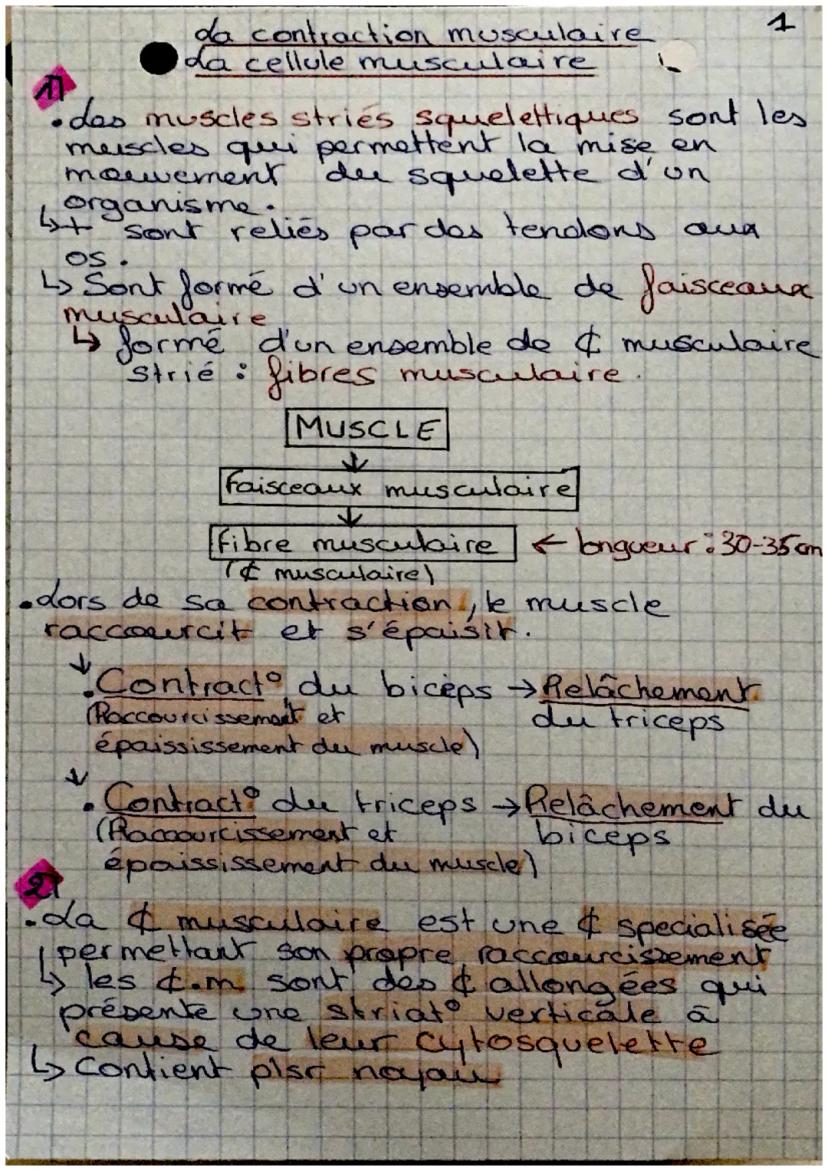 1
La contraction musculaire
La cellule musculaire
1)
. Les muscles striés squelettiques sont les
muscles qui permettent la mise en
mouvement du squelette d'un
organisme.
↳+ sont reliés par des tendons aux
os.
↳ Sont formé d'un ensemble de faisceaux
musculaire
↳ formé d'un ensemble de ₵ musculaire
strié : fibres musculaire.
MUSCLE
↓
Faisceaux musculaire
↓
fibre musculaire ← longueur : 30-35 cm
(₵ musculaire)
. Lors de sa contraction, le muscle
raccourcit et s'épaisit.
↓
. Contract° du biceps → Relâchement
(Raccourcissement et du triceps
épaississement du muscle)
↓
. Contract° du triceps → Relâchement du
(Raccourcissement et biceps
épaississement du muscle)
2)
. La ₵ musculaire est une ₵ specialisée
permettant son propre raccourcissement
↳ les ₵.m sont des ₵ allongées qui
présente une striat° verticale à
cause de leur cytosquelette
↳ Contient plsr noyau